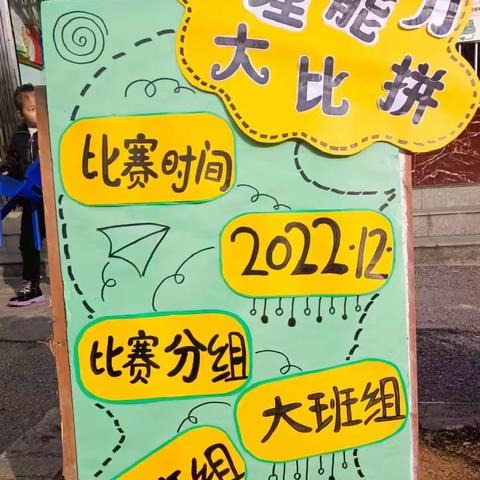 理能力
大比拼
比赛时间
2022.12.
比赛分组
大班组
班组